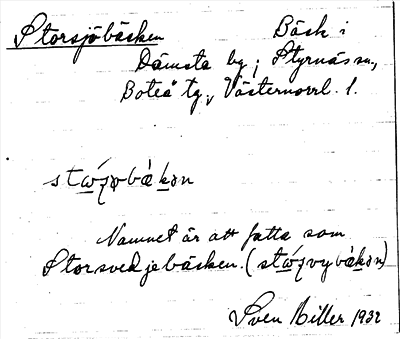 Storsjöbäcken Bäck i
Dämsta by; Styrnäs sn.,
Boteå tg., Västernorrl. l.
stɯ́ɼøbàkən
Namnet är att fatta som
Storsvedjebäcken. (stɯ́ɼvybàkən)
Sven Hiller 1932